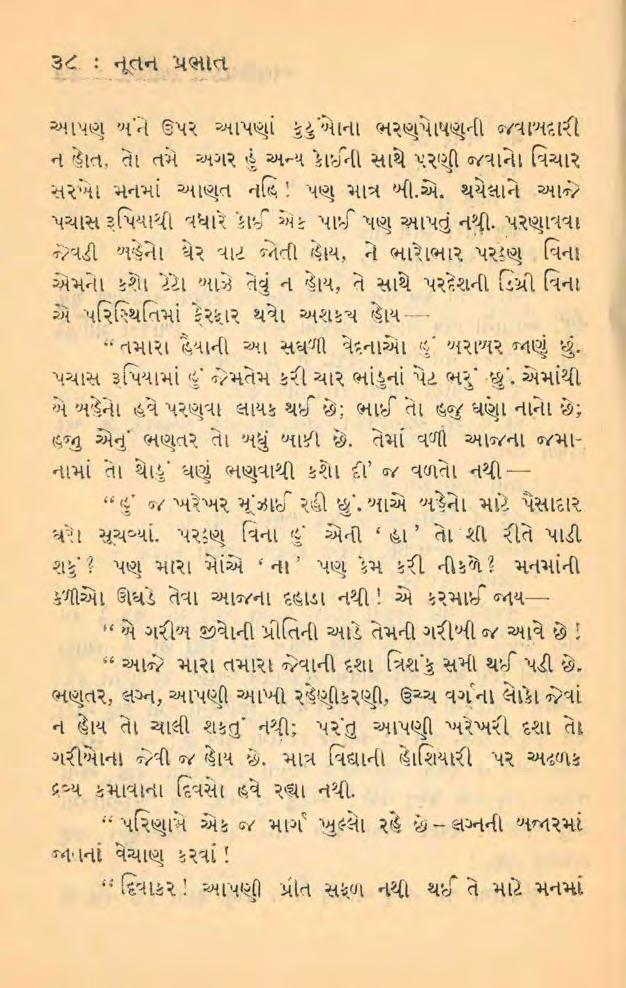 ૩૮ : નૂતન પ્રભાત
આપણ બંને ઉપર આપણાં કુટુંબોના ભરણપોષણની જવાબદારી
ન હોત, તો તમે અગર હું અન્ય કોઈની સાથે પરણી જવાનો વિચાર
સરખો મનમાં આણત નહિ! પણ માત્ર બી.એ. થયેલાને આજે
પચાસ રૂપિયાથી વધારે કોઈ એક પાઈ પણ આપતું નથી. પરણાવવા
જેવડી બહેનો ઘેર વાટ જોતી હોય, ને ભારોભાર પરઠણ વિના
એમનો કશો ટેટો બાઝે તેવું ન હોય, તે સાથે પરદેશની ડિગ્રી વિના
એ પરિસ્થિતિમાં ફેરફાર થવો અશક્ય હોય—
“તમારા હૈયાની આ સઘળી વેદનાઓ હું બરાબર જાણું છું.
પચાસ રૂપિયામાં હું જેમતેમ કરી ચાર ભાંડુનાં પેટ ભરું છું. એમાંથી
બે બહેનો હવે પરણવા લાયક થઈ છે; ભાઈ તો હજુ ઘણો નાનો છે;
હજુ એનું ભણતર તો બધું બાકી છે. તેમાં વળી આજના જમા-
નામાં તો થોડું ઘણું ભણવાથી કશો દી’ જ વળતો નથી—
“હું જ ખરેખર મૂંઝાઈ રહી છું. બાએ બહેનો માટે પૈસાદાર
ઘરો સૂચવ્યાં. પરઠણ વિના હું એની ‘હા’ તો શી રીતે પાડી
શકું? પણ મારા મોંએ ‘ના’ પણ કેમ કરી નીકળે? મનમાંની
કળીઓ ઊઘડે તેવા આજના દહાડા નથી! એ કરમાઈ જાય—
“બે ગરીબ જીવોની પ્રીતિની આડે તેમની ગરીબી જ આવે છે!
“આજે મારા તમારા જેવાની દશા ત્રિશંકુ સમી થઈ પડી છે.
ભણતર, લગ્ન, આપણી આખી રહેણીકરણી, ઉચ્ચ વર્ગના લોકો જેવાં
ન હોય તો ચાલી શકતું નથી; પરંતુ આપણી ખરેખરી દશા તો
ગરીબોના જેવી જ હોય છે. માત્ર વિદ્યાની હોશિયારી પર અઢળક
દ્રવ્ય કમાવાના દિવસો હવે રહ્યા નથી.
“પરિણામે એક જ માર્ગ ખુલ્લો રહે છે – લગ્નની બજારમાં
જાતનાં વેચાણ કરવાં!
“દિવાકર! આપણી પ્રીત સફળ નથી થઈ તે માટે મનમાં